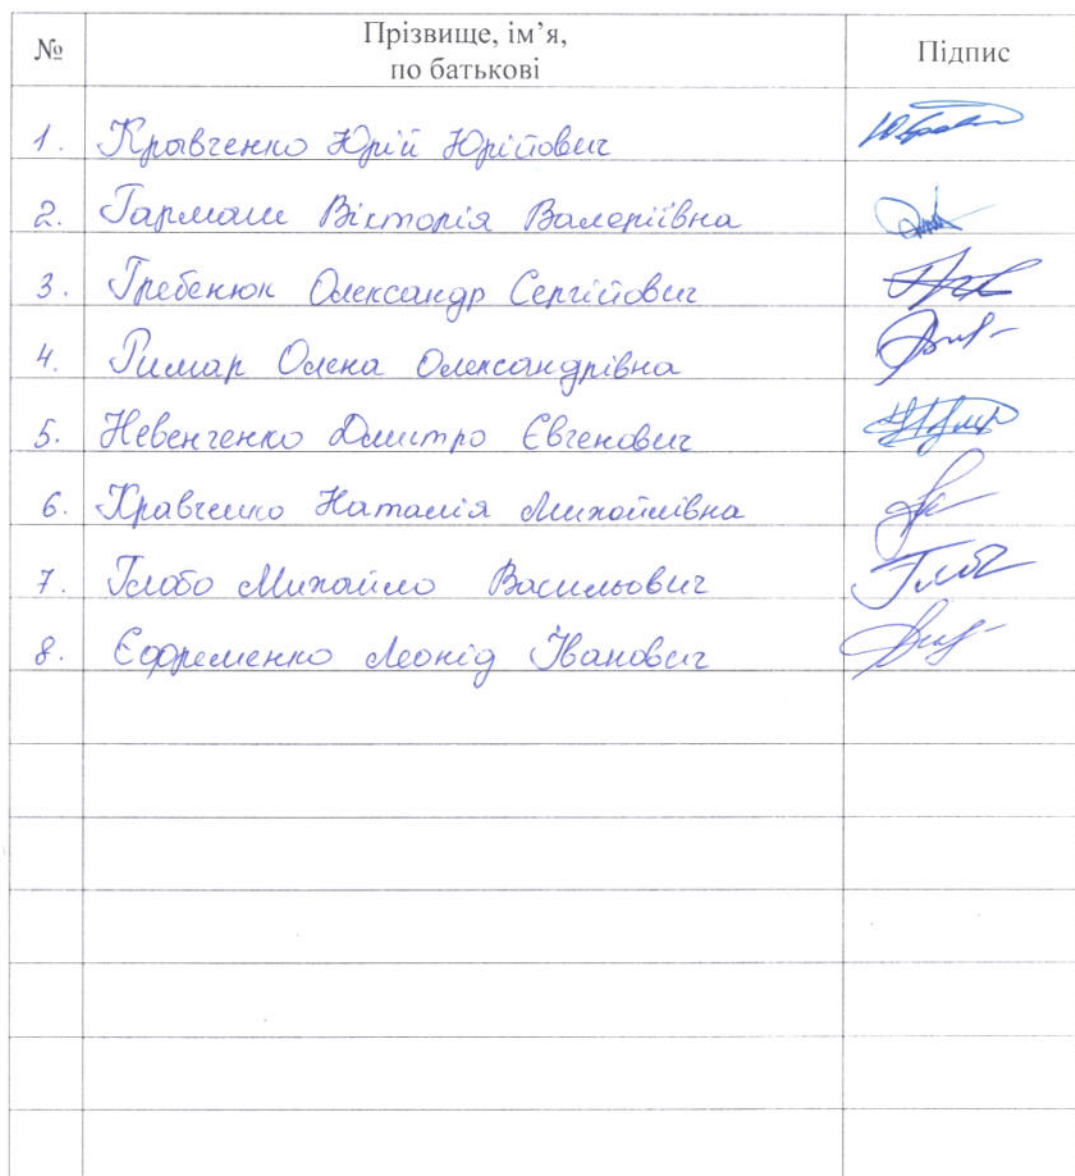 № Прізвище, ім’я, Підпис
по батькові
1. Кравченко Юрій Юрійович
2. Гармаш Вікторія Валеріївна
3. Гребенюк Олександр Сергійович
4. Римар Олена Олександрівна
5. Невенченко Дмитро Євгенович
6. Кравченко Наталія Михайлівна
7. Глобо Михайло Васильович
8. Єфременко Леонід Іванович